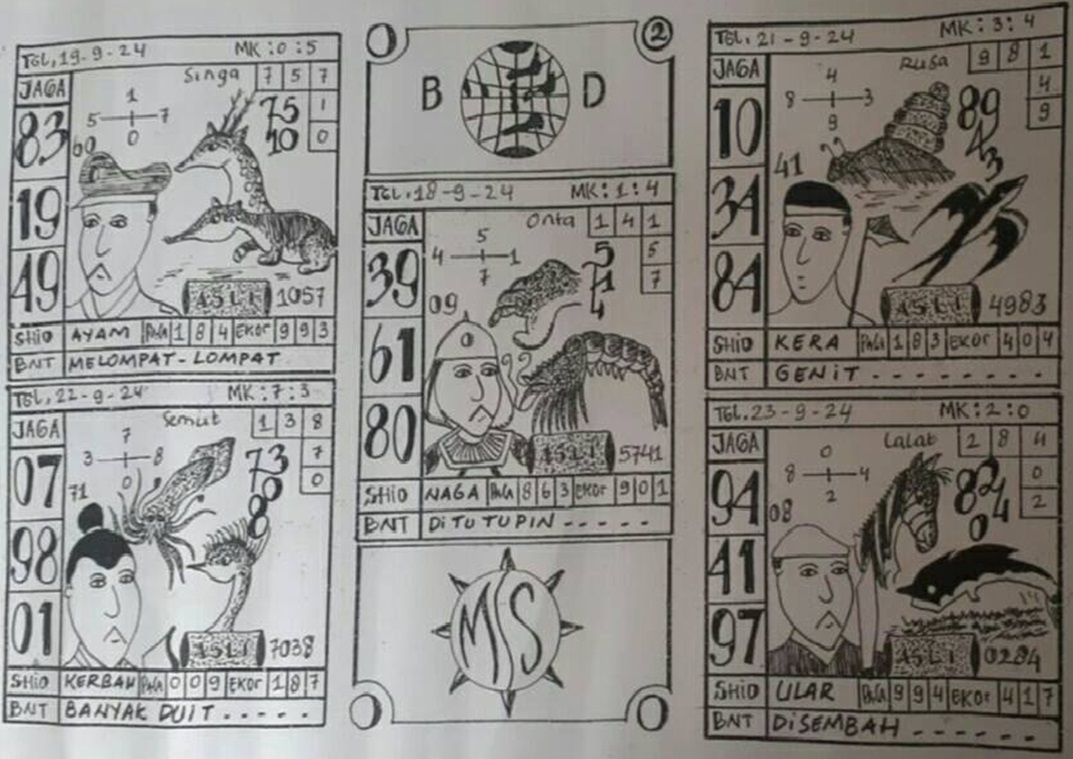 TGL, 19-9-24 MK: 0 : 5
JAGA
Singa 7 5 7
1
1
5 7
0
0
83
60
75
10
19
49
ASLI 1057
SHIO AYAM PALA 1 8 4 EKOR 9 9 3
BNT MELOMPAT-LOMPAT
TGL, 22-9-24 MK: 7 : 3
JAGA
Semut 1 3 8
7
7
3 8
0
0
07
71
73
0
8
98
01
ASLI 7038
SHIO KERBAU PALA 0 0 9 EKOR 1 8 7
BNT BANYAK DUIT - - - - -
2
B D
TGL, 18-9-24 MK: 1 : 4
JAGA
Onta 1 4 1
5
5
4 1
7
7
39
09
5
71
4
61
80
ASLI 5741
SHIO NAGA PALA 8 6 3 EKOR 9 0 1
BNT DITUTUPIN - - - - -
MS
TGL, 21-9-24 MK: 3 : 4
JAGA
RUSA 9 8 1
4
4
8 3
9
9
10
41
89
43
34
84
ASLI 4983
SHIO KERA PALA 1 8 3 EKOR 4 0 4
BNT GENIT - - - - - - - -
TGL, 23-9-24 MK: 2 : 0
JAGA
Lalat 2 8 4
0
0
8 4
2
2
94
08
82
4
0
41
97
ASLI 0284
SHIO ULAR PALA 9 9 4 EKOR 4 1 7
BNT DISEMBAH - - - - - -